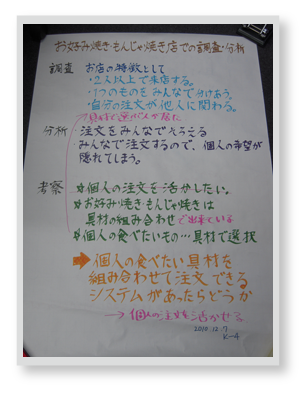 お好み焼き・もんじゃ焼き店での調査・分析
調査 お店の特徴として
・2人以上で来店する。
・1つのものをみんなで分けあう。
・自分の注文が他人に関わる。
分析・注文をみんなでそろえる
・みんなで注文するので、個人の希望が
隠れてしまう。
考察 *個人の注文を活かしたい。
*お好み焼き・もんじゃ焼きは
具材の組み合わせで出来ている
*個人の食べたいもの…具材で選択
➡個人の食べたい具材を
組み合わせて注文できる
システムがあったらどうか
→個人の注文を活かせる。
2010.12.7
K-4